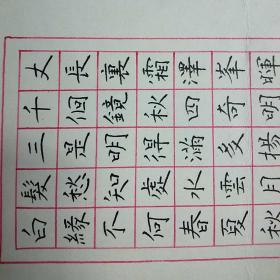 白髮三千丈
緣愁是個長
不知明鏡裏
何處得秋霜
春水滿四澤
夏雲多奇峯
秋月揚明暉